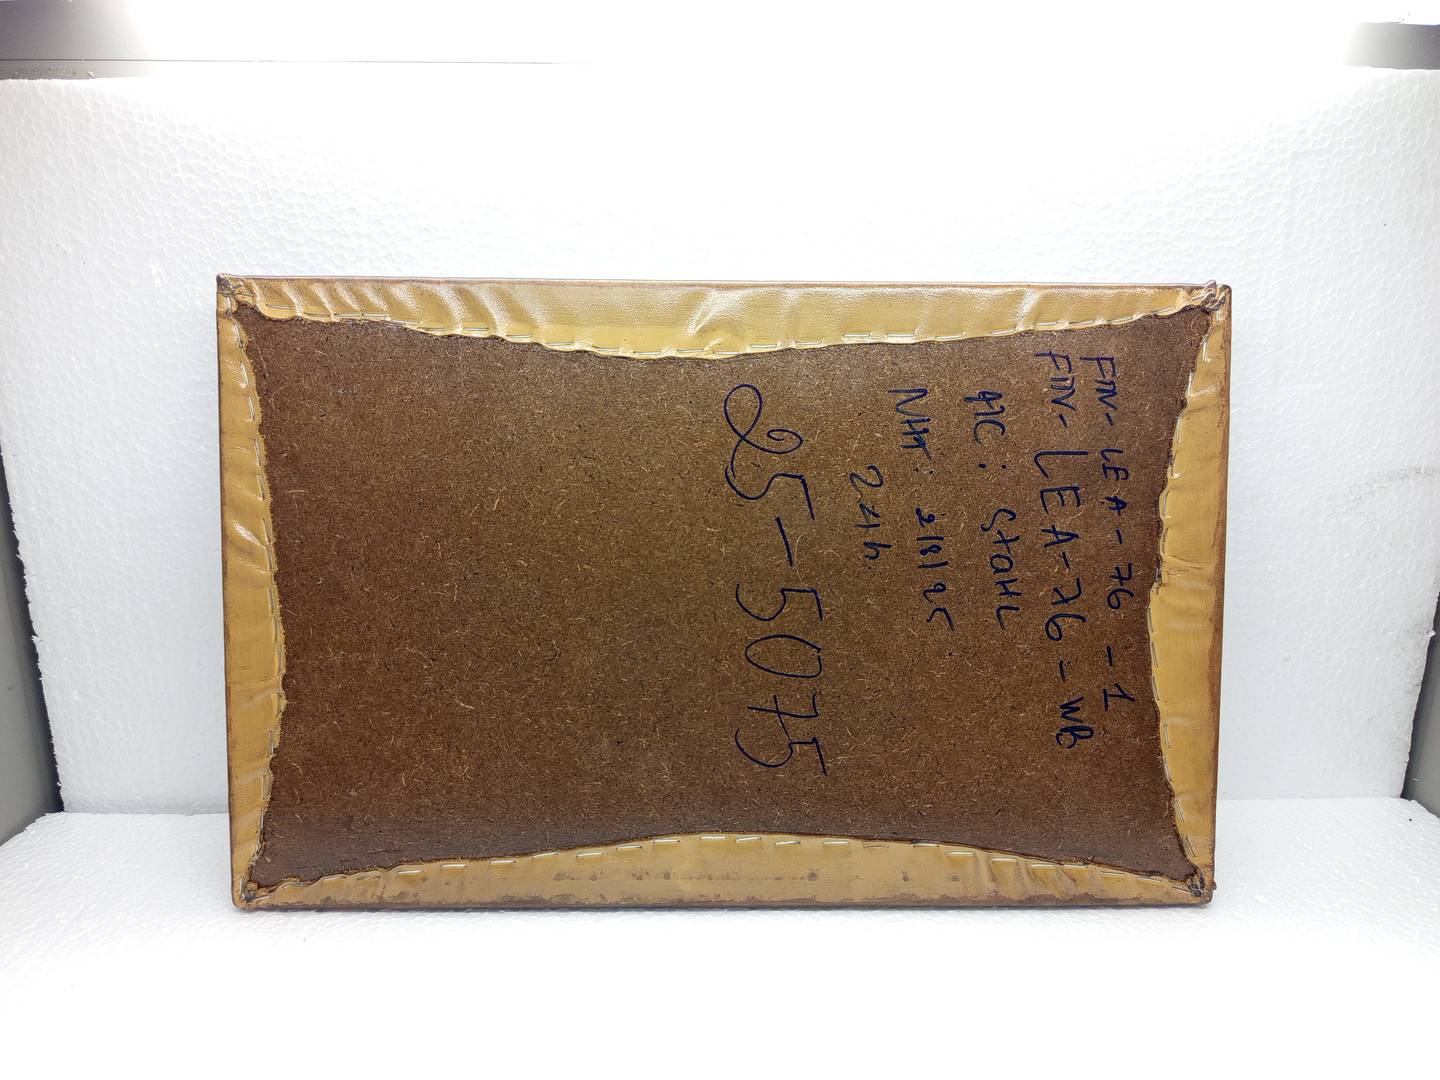 FIN-LEA-76-1
FIN-LEA-76-WB
QC: StaHL
NHT: 2/8/25
24h
25-5075